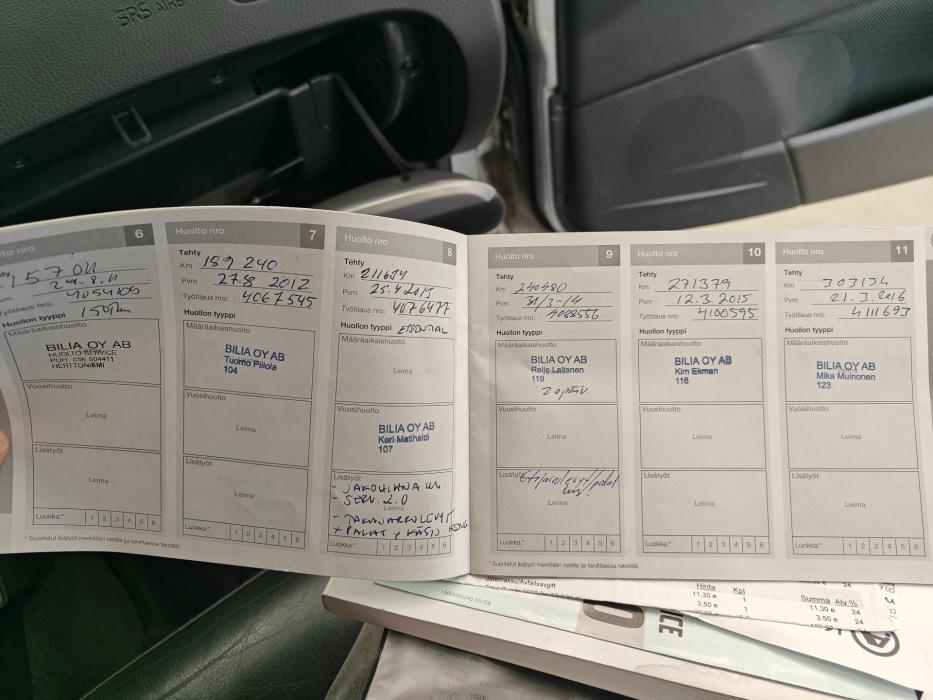 SRS AIRB
Huolto nro 6
29.8.11
4054100
Työtilaus nro:
Huollon tyyppi
Määräaikaishuolto
BILIA OY AB
HUOLTO-SERVICE
PUH. (09) 504411
HERTTONIEMI
Vuosihuolto
Leima
Lisätyöt
Leima
Luokka:* 1 2 3 4 5 6
* Suoritetut lisätyöt merkitään rastilla (ja tarvittaessa tekstillä).
Huolto nro 7
Tehty
Km 189 240
Pvm 27.8 2012
Työtilaus nro: 4067545
Huollon tyyppi
Määräaikaishuolto
BILIA OY AB
Tuomo Piilola
104
Vuosihuolto
Leima
Lisätyöt
Leima
Luokka:* 1 2 3 4 5 6
Huolto nro 8
Tehty
Km
Pvm
Työtilaus nro: 4076477
Huollon tyyppi
Määräaikaishuolto
Leima
Vuosihuolto
BILIA OY AB
Kari Matihaldi
107
Lisätyöt
- JAKOHIHNA
- SERV. 2.0
Leima
- TAKAJARRULEVYT
+ PALAT + KÄSIJ.
Luokka:* 1 2 3 4 5 6
Huolto nro 9
Tehty
Km 240480
Pvm 31/3-14
Työtilaus nro: 4088556
Huollon tyyppi
Määräaikaishuolto
BILIA OY AB
Reijo Laitanen
119
Vuosihuolto
Leima
Lisätyöt Etujarrulevyt/palat
Leima
Luokka:* 1 2 3 4 5 6
* Suoritetut lisätyöt merkitään rastilla (ja tarvittaessa tekstillä).
Huolto nro 10
Tehty
Km 271379
Pvm 12.3.2015
Työtilaus nro: 4100595
Huollon tyyppi
Määräaikaishuolto
BILIA OY AB
Kim Ekman
116
Vuosihuolto
Leima
Lisätyöt
Leima
Luokka:* 1 2 3 4 5 6
Huolto nro 11
Tehty
Km 303134
Pvm 21.3.2016
Työtilaus nro: 4111693
Huollon tyyppi
Määräaikaishuolto
BILIA OY AB
Mika Muinonen
123
Vuosihuolto
Leima
Lisätyöt
Leima
Luokka:* 1 2 3 4 5 6
Jätemaksu/Avfallsavgift
Hinta Kpl
11,30 e 1
3,50 e 1
Summa Alv %
11,30 e 24
3,50 e 24